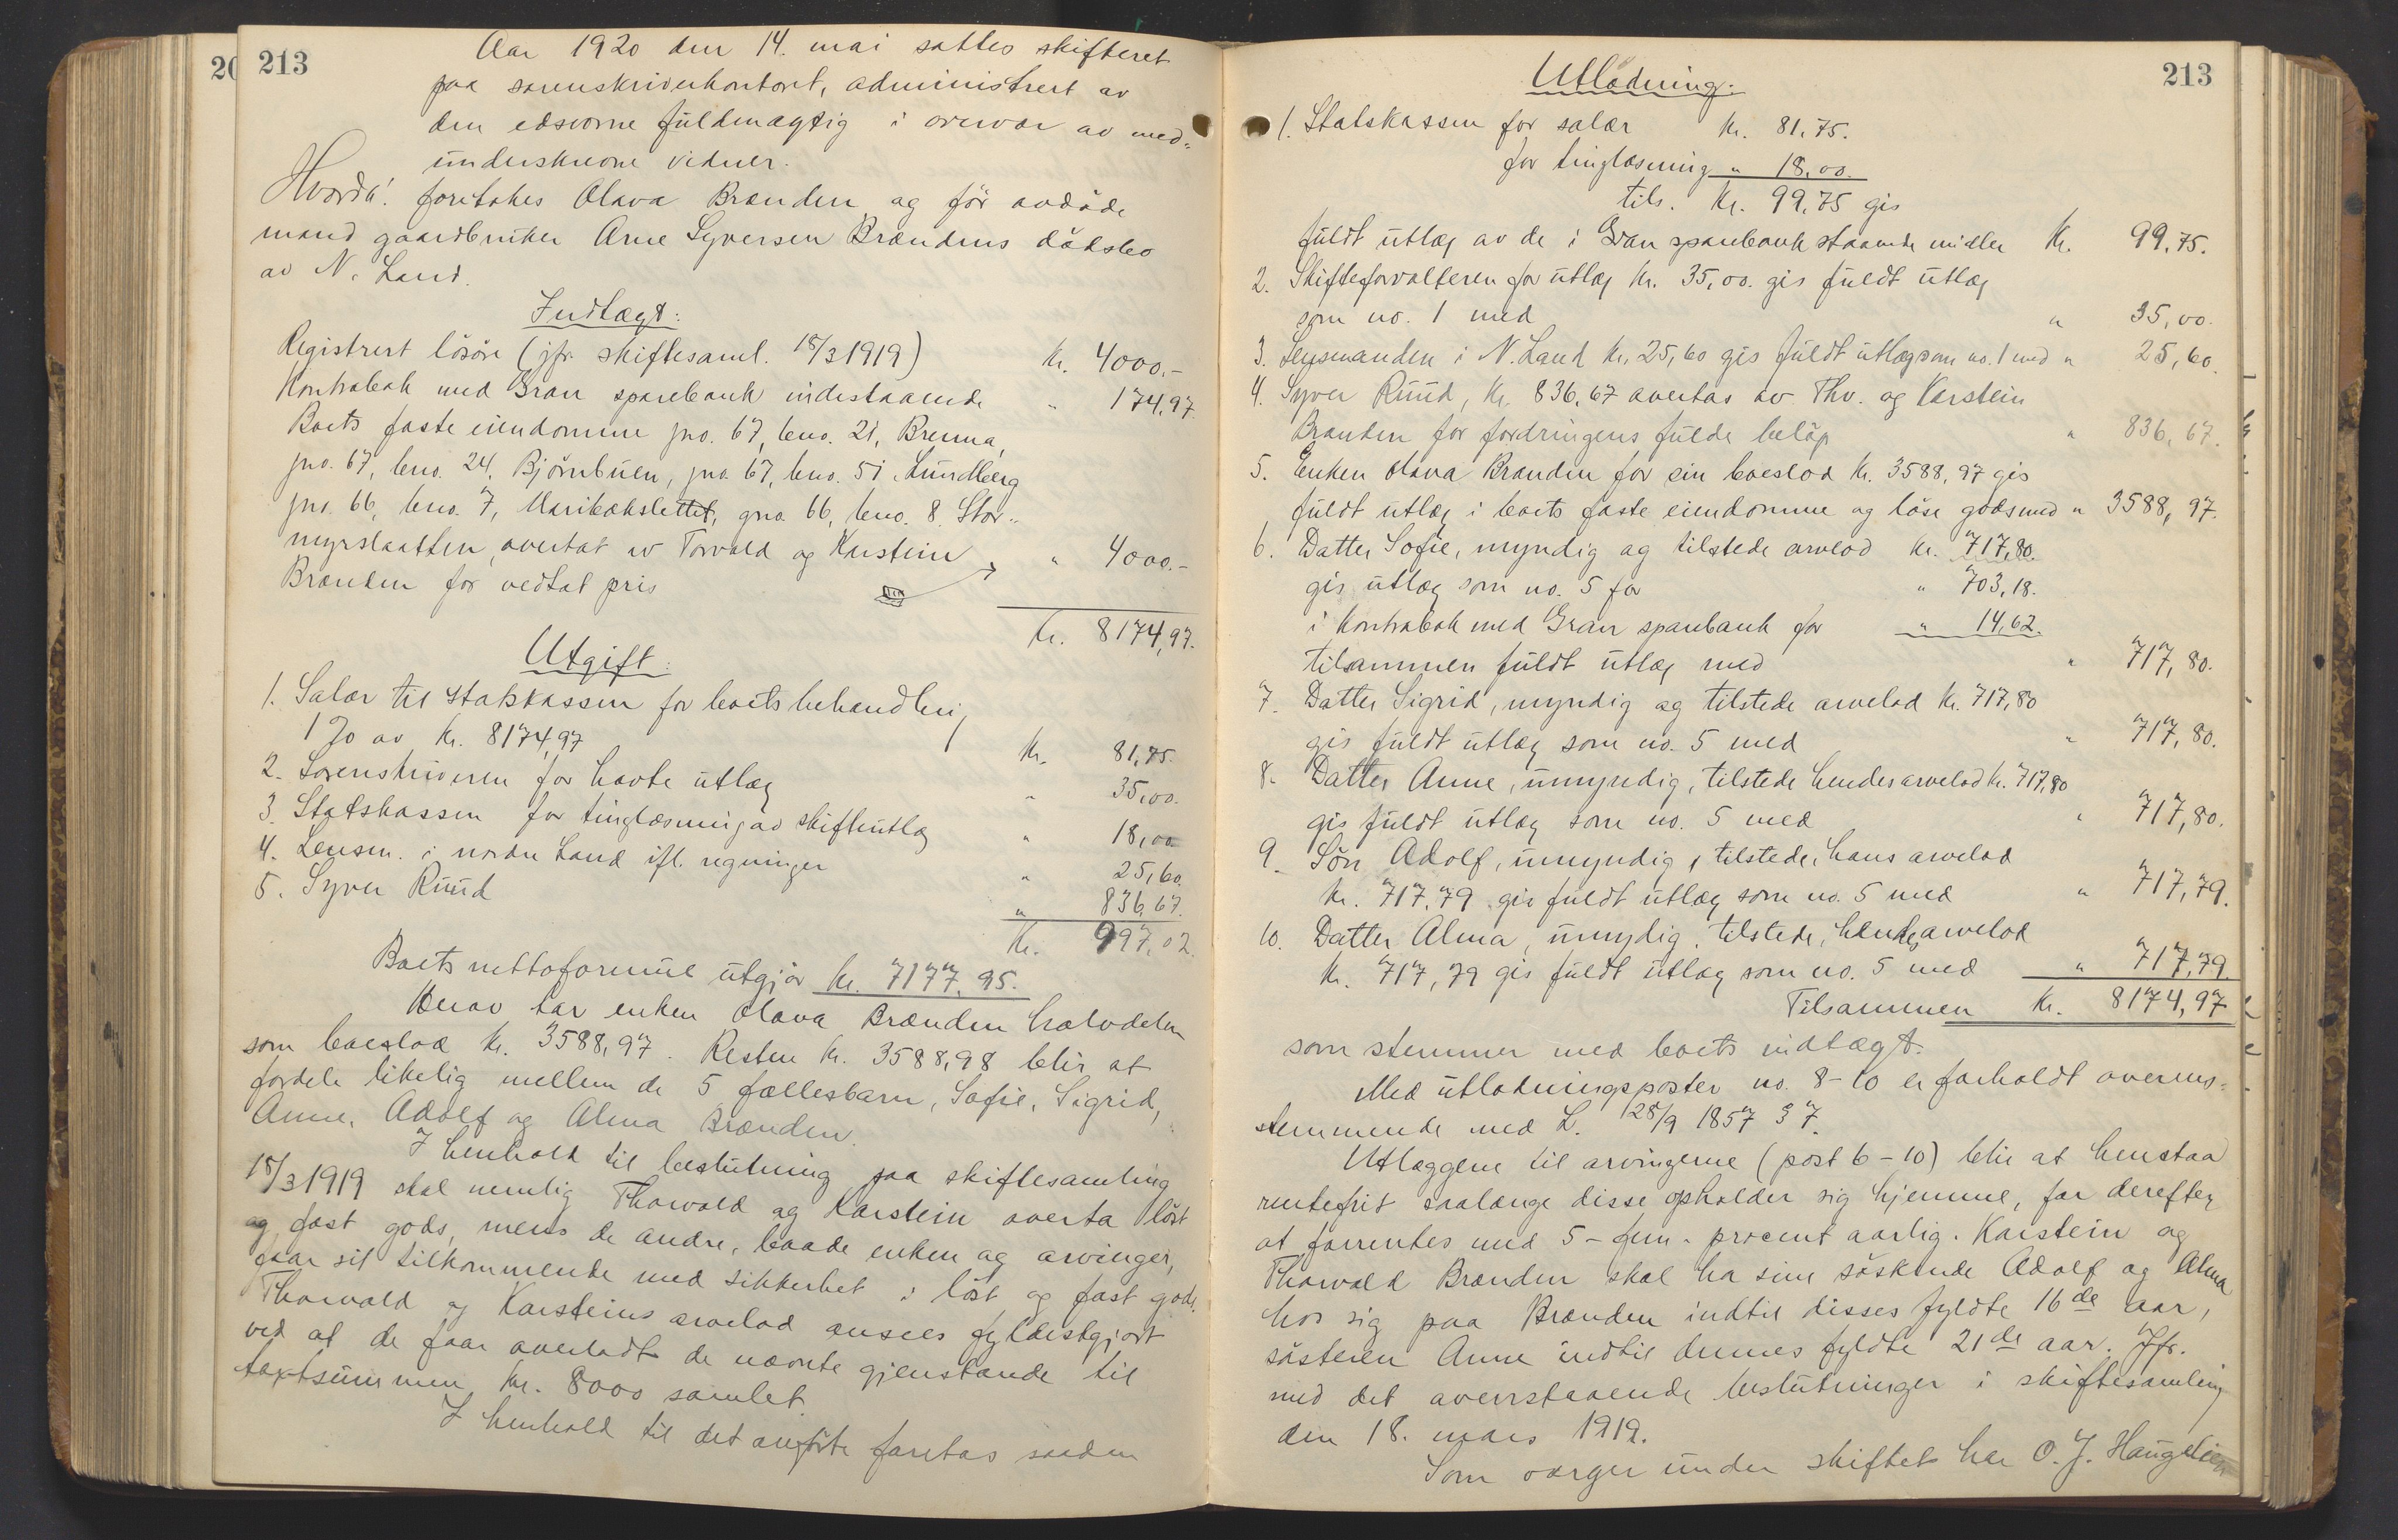 20
213
Aar 1920 den 14. mai sattes skifteret
paa sorenskriverkontoret, administrert av
den edsvorne fuldmægtig i overvær av med-
underskrevne vidner.
Hvorda! foretokes Olava Brænden og før avdøde
mand gaardbruker Arne Syversen Brændens dødsbo
av N. Land.
Indtægt:
Registrert løsøre (jfr. skiftesaml. 18/3 1919) Kr. 4000.-
Kontrabok med Gran sparebank indestaaende " 174,97.
Boets faste eiendomme gno. 67, bno. 21, Brenna,
gno. 67, bno. 24, Bjørnbuen, gno. 67, bno. 51, Lundberg
gno. 66, bno. 7, Maribækslettet, gno. 66, bno. 8. Stor-
myrslaatten, overtat av Torvald og Karstein
Brænden for vedtat pris " 4000.-
Kr. 8174,97.
Utgift:
1. Salær til statskassen for boets behandling
1 % av kr. 8174,97 Kr. 81,75.
2. Sorenskriveren for havte utlæg " 35,00.
3. Statskassen for tinglæsning av skifteutlæg " 18,00
4. Lensm. i nordre Land ifl. regninger " 25,60.
5. Syver Ruud " 836,67.
Kr. 997,02.
Boets nettoformue utgjør kr. 7177,95.
Herav tar enken Olava Brænden halvdelen
som boeslod kr. 3588,97. Resten kr. 3588,98 blir at
fordele likelig mellem de 5 fællesbarn, Sofie, Sigrid,
Anne, Adolf og Alma Brænden.
I henhold til beslutning paa skiftesamling
18/3 1919 skal nemlig Thorvald og Karstein overta løst
og fast gods, mens de andre, baade enken og arvinger,
faar sit tilkommende med sikkerhet i løst og fast gods.
Thorvald og Karsteins arvelod ansees fyldestgjort
ved at de faar overladt de nævnte gjenstande til
taxtsummen kr. 8000 samlet.
I henhold til det anførte foretas saadan
213
Utlodning:
1. Statskassen for salær kr. 81,75.
for tinglæsning " 18,00.
tils. kr. 99,75 gis
fuldt utlæg av de i Gran sparebank staaende midler Kr. 99,75.
2. Skifteforvalteren for utlæg kr. 35,00. gis fuldt utlæg
som no. 1 med " 35,00.
3. Lensmanden i N. Land kr. 25,60 gis fuldt utlæg som no. 1 med " 25,60.
4. Syver Ruud, kr. 836,67 overtas av Thv. og Karstein
Brænden for fordringens fulde beløp " 836,67.
5. Enken Olava Brænden for sin boeslod kr. 3588,97 gis
fuldt utlæg i boets faste eiendomme og løse gods med " 3588,97.
6. Datter Sofie, myndig og tilstede arvelod kr. 717,80.
gis utlæg som no. 5 for " 703,18.
i Kontrabok med Gran sparebank for " 14,62.
tilsammen fuldt utlæg med " 717,80.
7. Datter Sigrid, myndig og tilstede arvelod kr. 717,80
gis fuldt utlæg som no. 5 med " 717,80.
8. Datter Anne, umyndig, tilstede hendes arvelod kr. 717,80
gis fuldt utlæg som no. 5 med " 717,80.
9. Søn Adolf, umyndig, tilstede, hans arvelod
kr. 717,79 gis fuldt utlæg som no. 5 med " 717,79.
10. Datter Alma, umydig, tilstede, hendes arvelod
kr. 717,79 gis fuldt utlæg som no. 5 med " 717,79.
Tilsammen Kr. 8174,97
som stemmer med boets indtægt.
Med utlodningsposter no. 8-10 er forholdt overens-
stemmende med L. 28/9 1857 § 7.
Utlæggene til arvingerne (post 6-10) blir at henstaa
rentefrit saalænge disse opholder sig hjemme, for derefter
at forrentes med 5 - fem - procent aarlig. Karstein og
Thorvald Brænden skal ha sine søskende Adolf og Alma
hos sig paa Brænden indtil disses fyldte 16de aar,
søsteren Anne indtil dennes fyldte 21de aar. Jfr.
med det overstaaende beslutninger i skiftesamling
den 18. mars 1919.
Som værger under skiftet har O. J. Haugelien